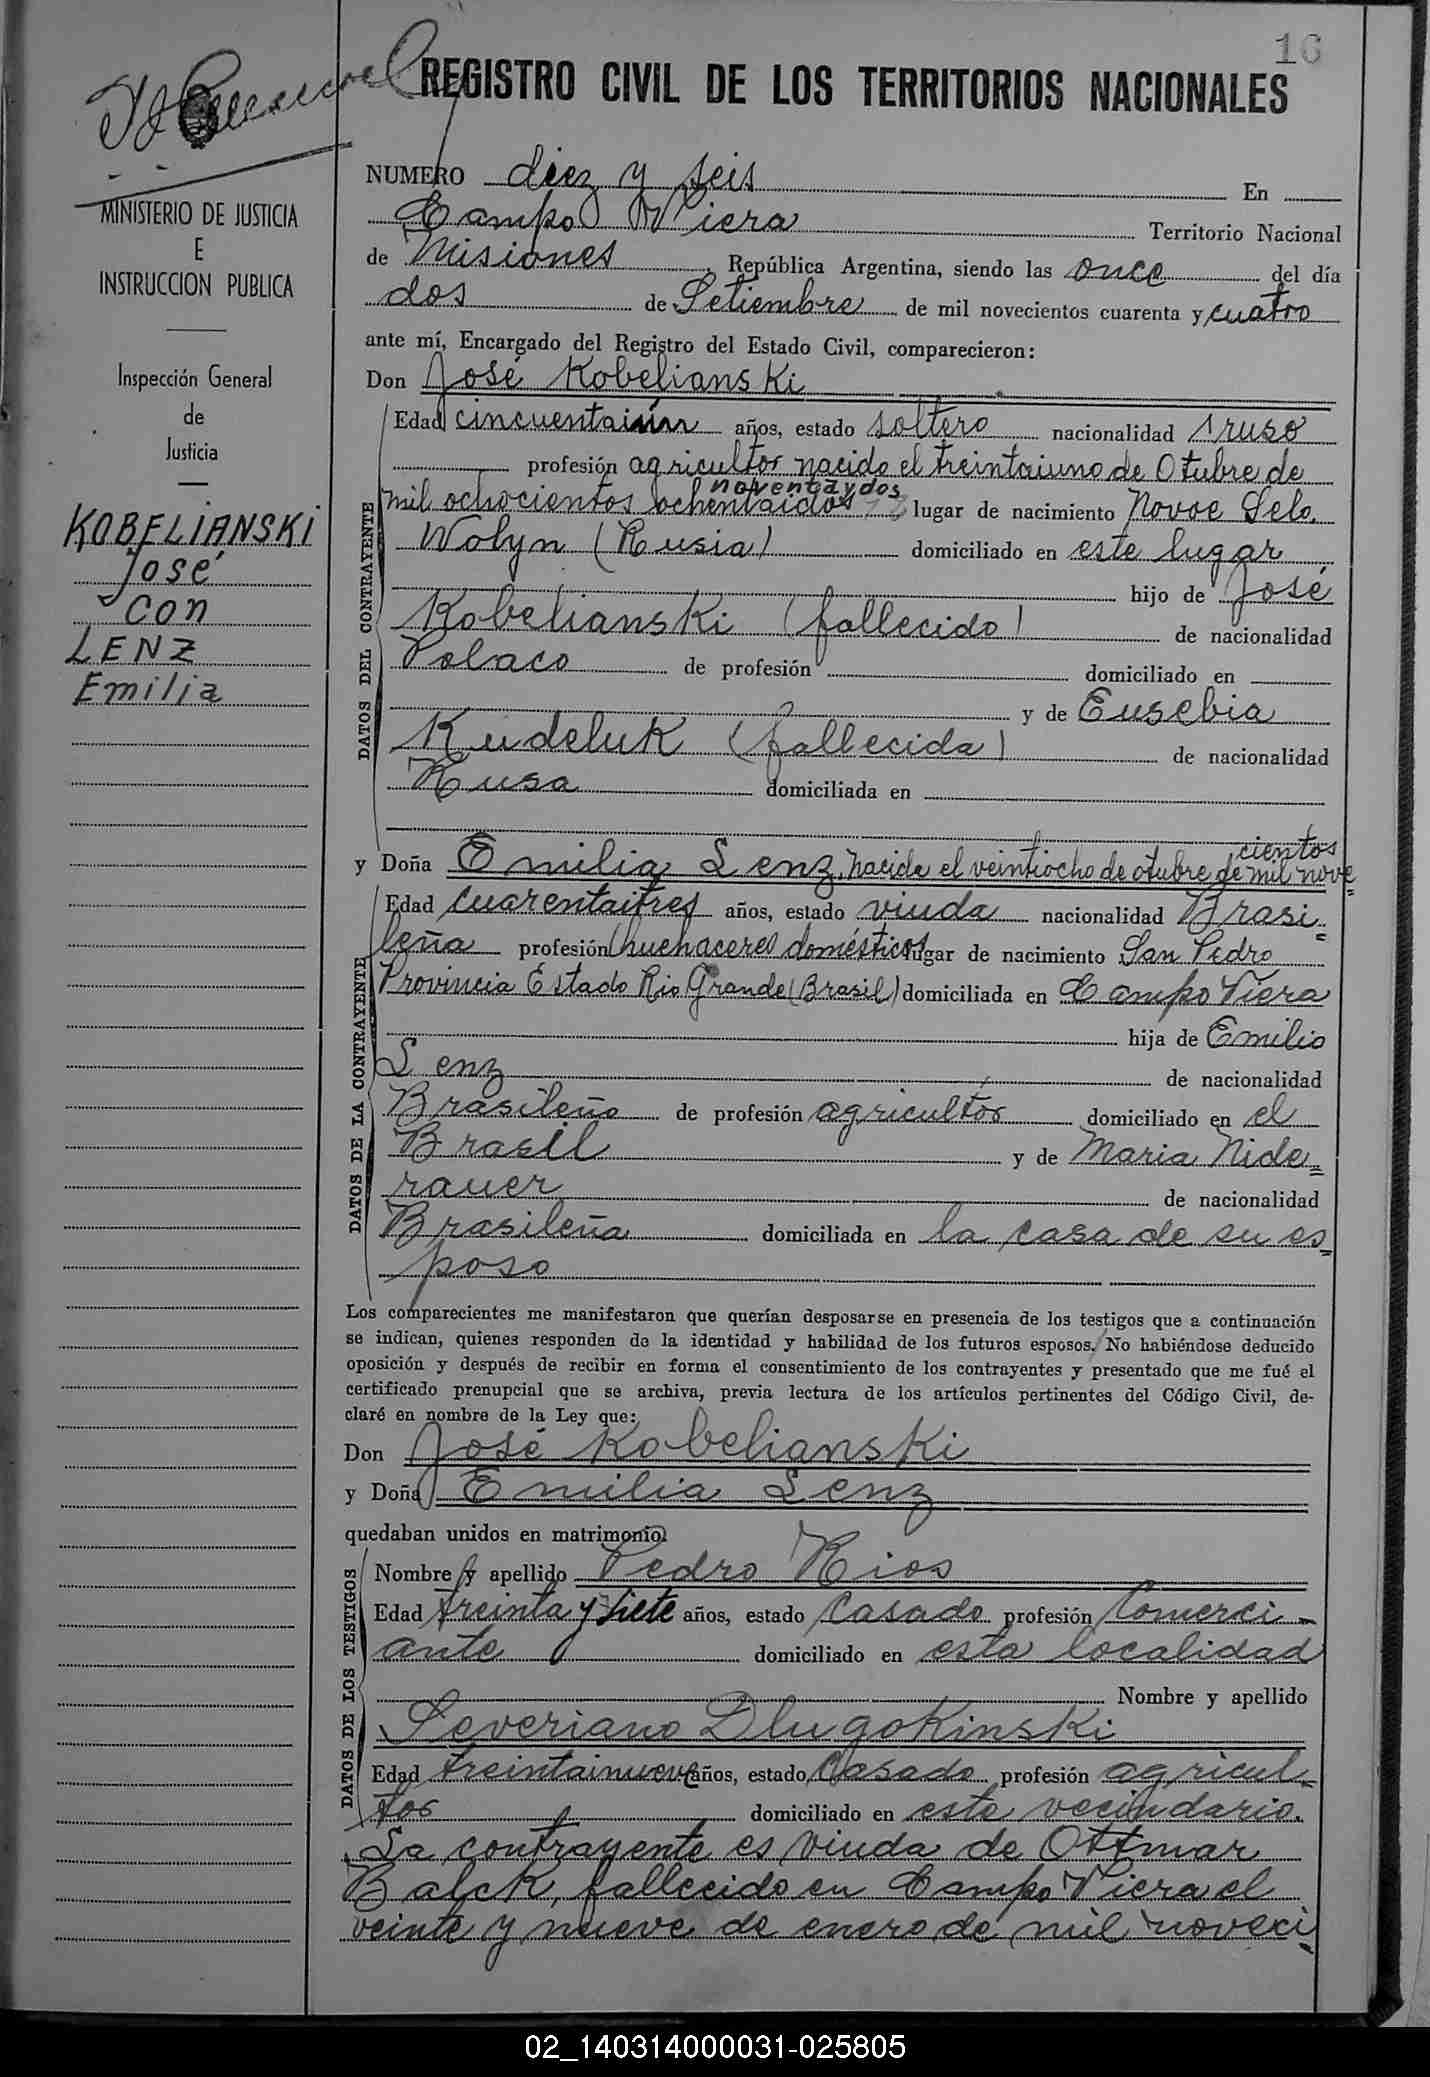 16
REGISTRO CIVIL DE LOS TERRITORIOS NACIONALES
MINISTERIO DE JUSTICIA
E
INSTRUCCION PUBLICA
Inspección General
de
Justicia
KOBELIANSKI
José
con
LENZ
Emilia
NUMERO diez y seis En
Campo Viera Territorio Nacional
de Misiones, República Argentina, siendo las once del día
dos de Setiembre de mil novecientos cuarenta y cuatro
ante mí, Encargado del Registro del Estado Civil, comparecieron:
Don José Kobelianski
DATOS DEL CONTRAYENTE
Edad cincuentaiún años, estado soltero nacionalidad ruso
profesión agricultor nacido el treintaiuno de Otubre de
noventaydos
mil ochocientos ochentaidos lugar de nacimiento Novoe Selo.
Wolyn (Rusia) domiciliado en este lugar
hijo de José
Kobelianski (fallecido) de nacionalidad
Polaco de profesión domiciliado en
y de Eusebia
Kudeluk (fallecida) de nacionalidad
Rusa domiciliada en
cientos
y Doña Emilia Lenz, nacida el veintiocho de otubre de mil nove=
DATOS DE LA CONTRAYENTE
Edad cuarentaitres años, estado viuda nacionalidad Brasi=
leña profesión huehaceres domésticos lugar de nacimiento San Pedro
Provincia Estado Rio Grande (Brasil) domiciliada en Campo Viera
hija de Emilio
Lenz de nacionalidad
Brasileño de profesión agricultor domiciliado en el
Brasil y de Maria Nide=
rauer de nacionalidad
Brasileña domiciliada en la casa de su es=
poso
Los comparecientes me manifestaron que querían desposarse en presencia de los testigos que a continuación
se indican, quienes responden de la identidad y habilidad de los futuros esposos. No habiéndose deducido
oposición y después de recibir en forma el consentimiento de los contrayentes y presentado que me fué el
certificado prenupcial que se archiva, previa lectura de los artículos pertinentes del Código Civil, de-
claré en nombre de la Ley que:
Don José Kobelianski
y Doña Emilia Lenz
quedaban unidos en matrimonio
DATOS DE LOS TESTIGOS
Nombre y apellido Pedro Rios
Edad treinta y siete años, estado Casado profesión Comerci-
ante domiciliado en esta localidad
Nombre y apellido
Severiano Dlugokinski
Edad treintainueve años, estado Casado profesión agricul-
tor domiciliado en este vecindario.
La contrayente es viuda de Ottmar
Balck, fallecido en Campo Viera el
veinte y nueve de enero de mil noveci-
02_140314000031-025805